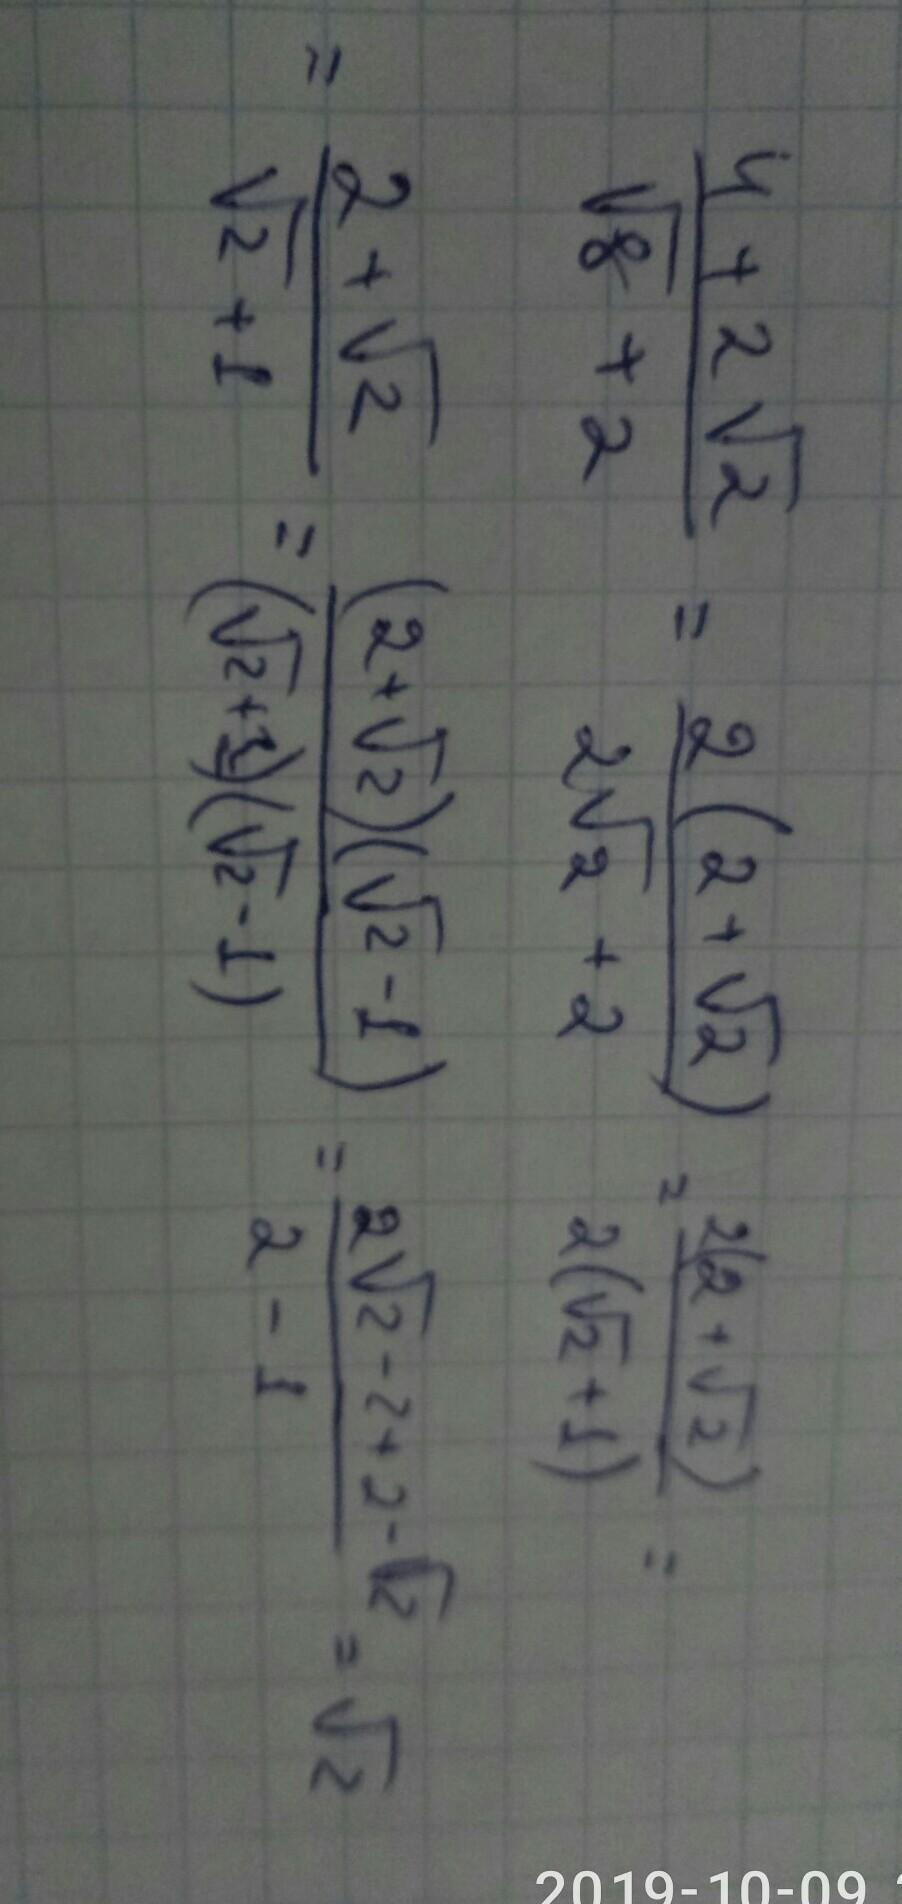 (4 + 2√2)/(√8 + 2) = 2(2 + √2)/(2√2 + 2) = 2(2 + √2)/(2(√2 + 1)) =
= (2 + √2)/(√2 + 1) = ((2 + √2)(√2 - 1))/((√2 + 1)(√2 - 1)) = (2√2 - 2 + 2 - √2)/(2 - 1) = √2
2019-10-09